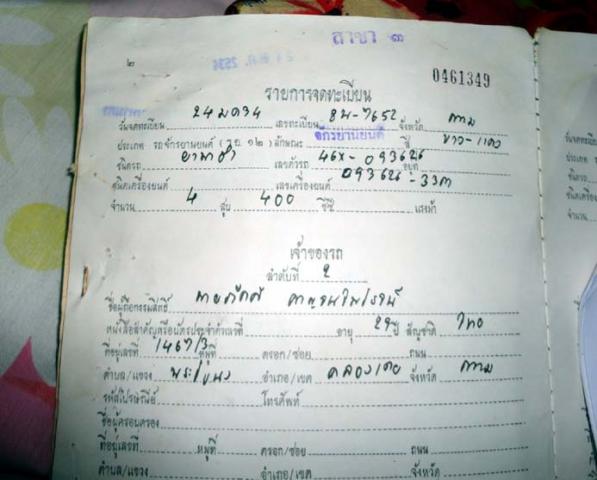 สาขา ๓
๒
0461349
รายการจดทะเบียน
วันจดทะเบียน 24 มค 34 เลขทะเบียน 8น-7652 จังหวัด กทม
ประเภท รถจักรยานยนต์ (รย. ๑๒) ลักษณะ จักรยานยนต์ สี ขาว-แดง
ชนิดรถ ยามาฮ่า เลขตัวรถ 46X-093626 อยู่ที่
ชนิดเครื่องยนต์ เลขเครื่องยนต์ 093626-33ค
จำนวน 4 สูบ 400 ซีซี แรงม้า
เจ้าของรถ
ลำดับที่ 2
ชื่อผู้ถือกรรมสิทธิ์ นาย
หนังสือสำคัญหรือบัตรประจำตัวเลขที่ อายุ 29 ปี สัญชาติ ไทย
ที่อยู่เลขที่ 1467/3 หมู่ที่ ตรอก/ซอย ถนน
ตำบล/แขวง พระโขนง อำเภอ/เขต คลองเตย จังหวัด กทม
รหัสไปรษณีย์ โทรศัพท์
ชื่อผู้ครอบครอง
ที่อยู่เลขที่ หมู่ที่ ตรอก/ซอย ถนน
ตำบล/แขวง อำเภอ/เขต จังหวัด